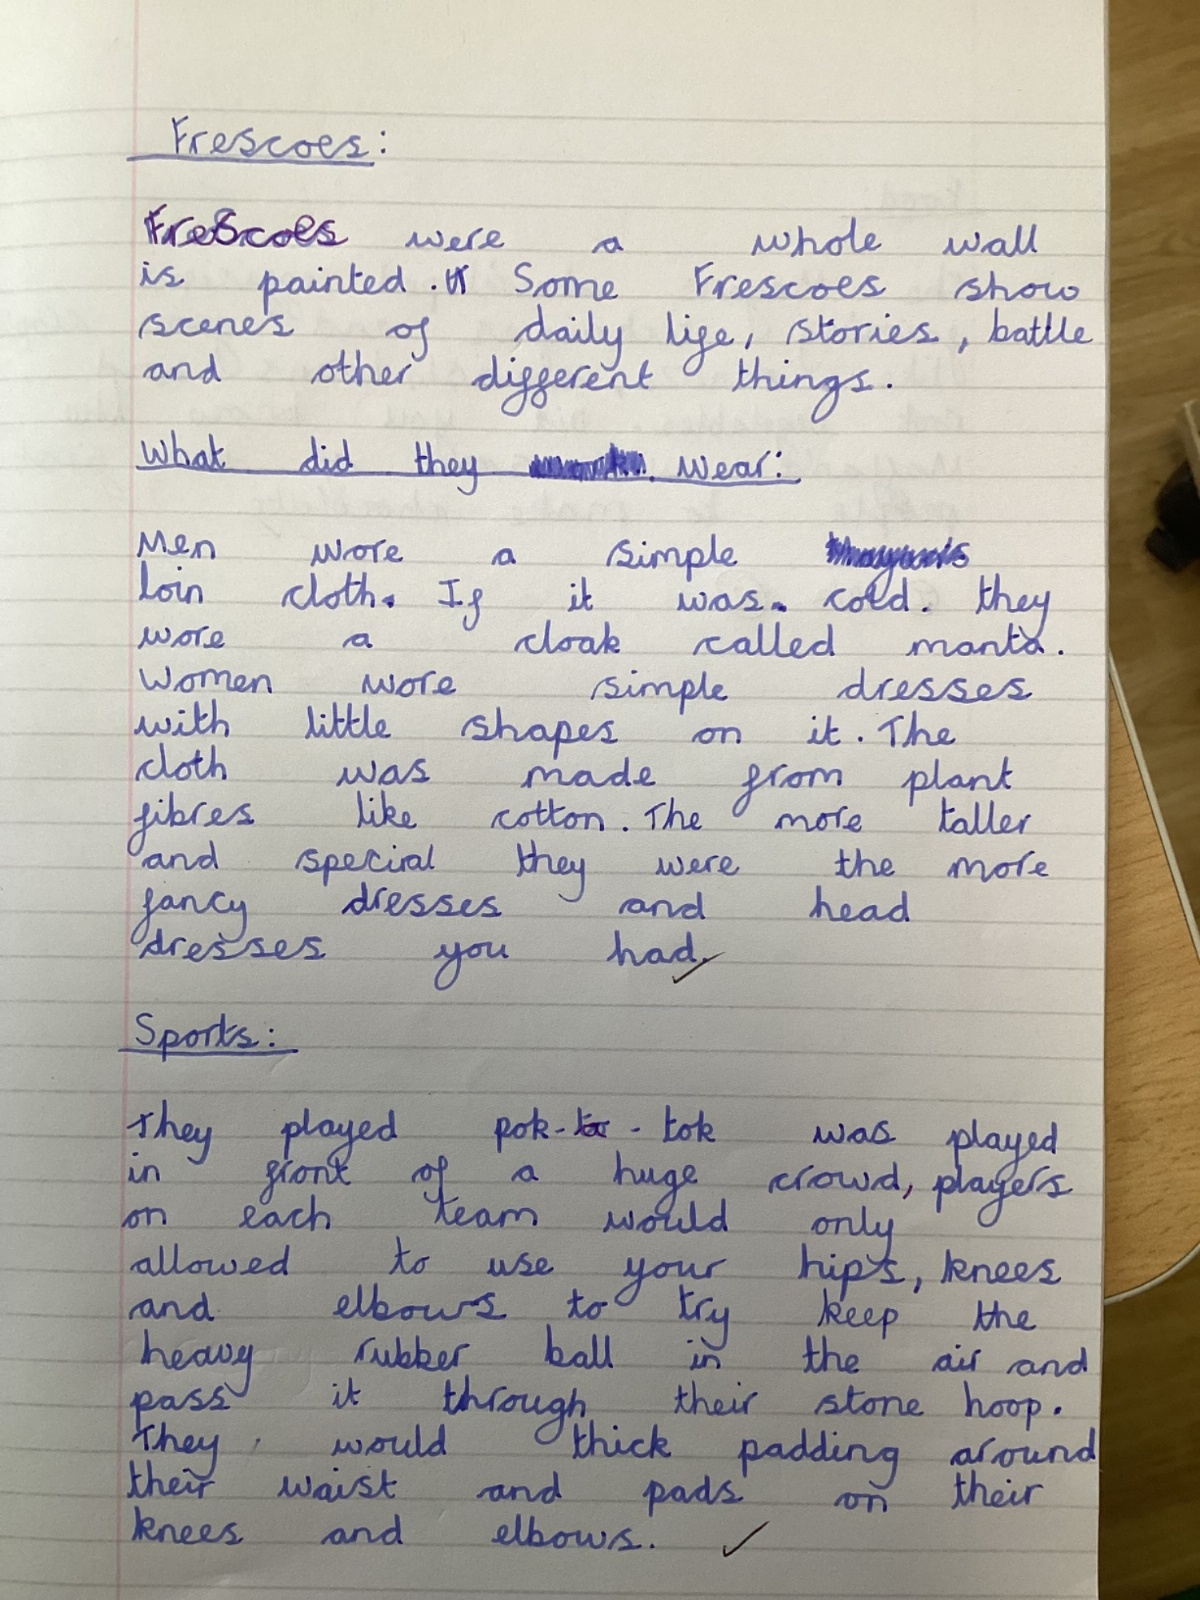 Frescoes:
Frescoes were a whole wall
is painted. Some Frescoes show
scenes of daily life, stories, battle
and other different things.
What did they wear:
Men wore a simple
loin cloth. If it was. cold. they
wore a cloak called manta.
Women wore simple dresses
with little shapes on it. The
cloth was made from plant
fibres like cotton. The more taller
and special they were the more
fancy dresses and head
dresses you had.
Sports:
They played pok-ta-tok was played
in front of a huge crowd, players
on each team would only
allowed to use your hips, knees
and elbows to try keep the
heavy rubber ball in the air and
pass it through their stone hoop.
They would thick padding around
their waist and pads on their
knees and elbows.